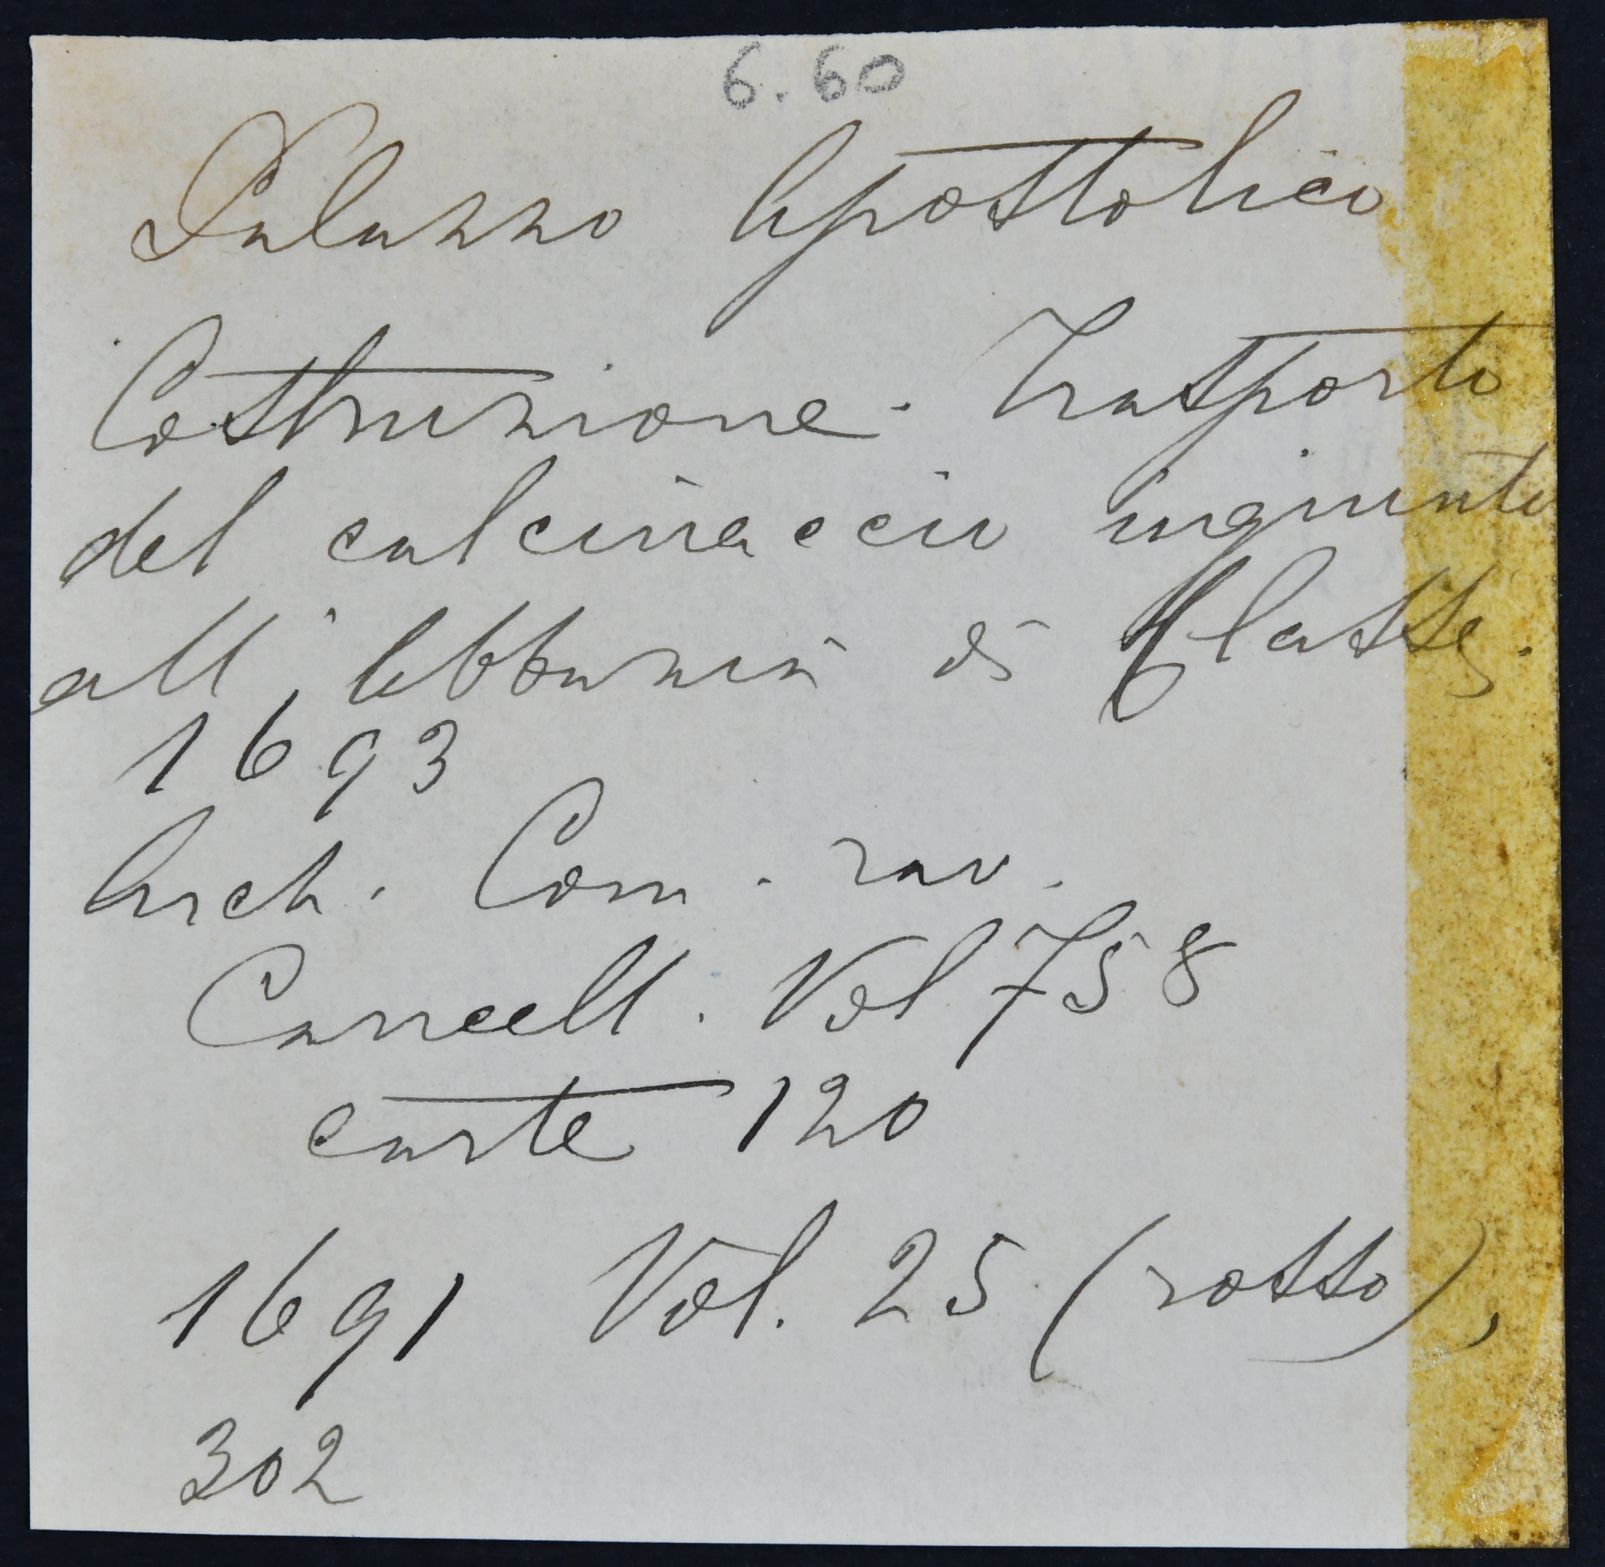 6.60
Palazzo Apostolico
Costruzione. Trasporto
del calcinaccio ingiunto
all'Abbazia di Classe.
1693
Arch. Com. rav.
Cancell. Vol 758
carte 120
1691 Vol. 25 (rosso),
302